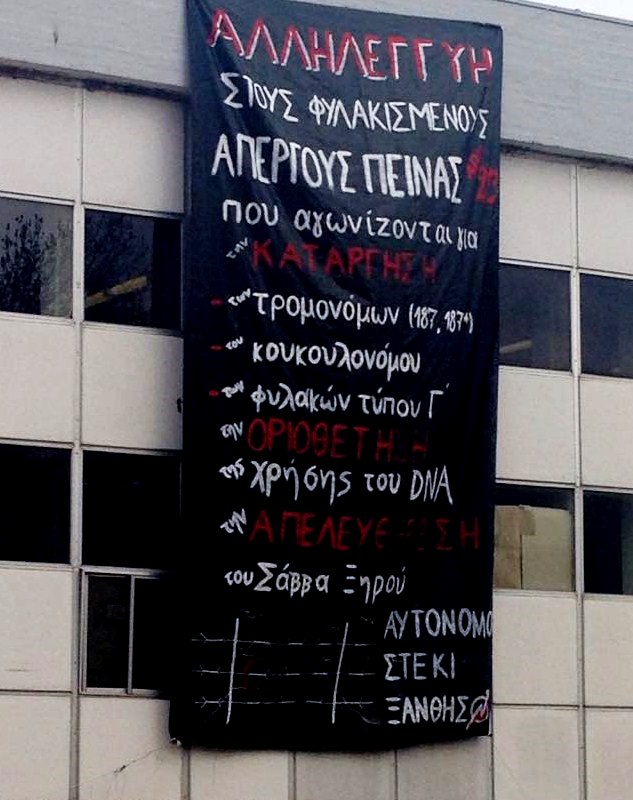 ΑΛΛΗΛΕΓΓΥΗ
ΣΤΟΥΣ ΦΥΛΑΚΙΣΜΕΝΟΥΣ
ΑΠΕΡΓΟΥΣ ΠΕΙΝΑΣ
που αγωνίζονται για
την ΚΑΤΑΡΓΗΣΗ
- των τρομονόμων (187, 187Α)
- του κουκουλονόμου
- των φυλακών τύπου Γ΄
την ΟΡΙΟΘΕΤΗΣΗ
της χρήσης του DNA
την ΑΠΕΛΕΥΘΕΡΩΣΗ
του Σάββα Ξηρού
ΑΥΤΟΝΟΜΟ
ΣΤΕΚΙ
ΞΑΝΘΗΣ